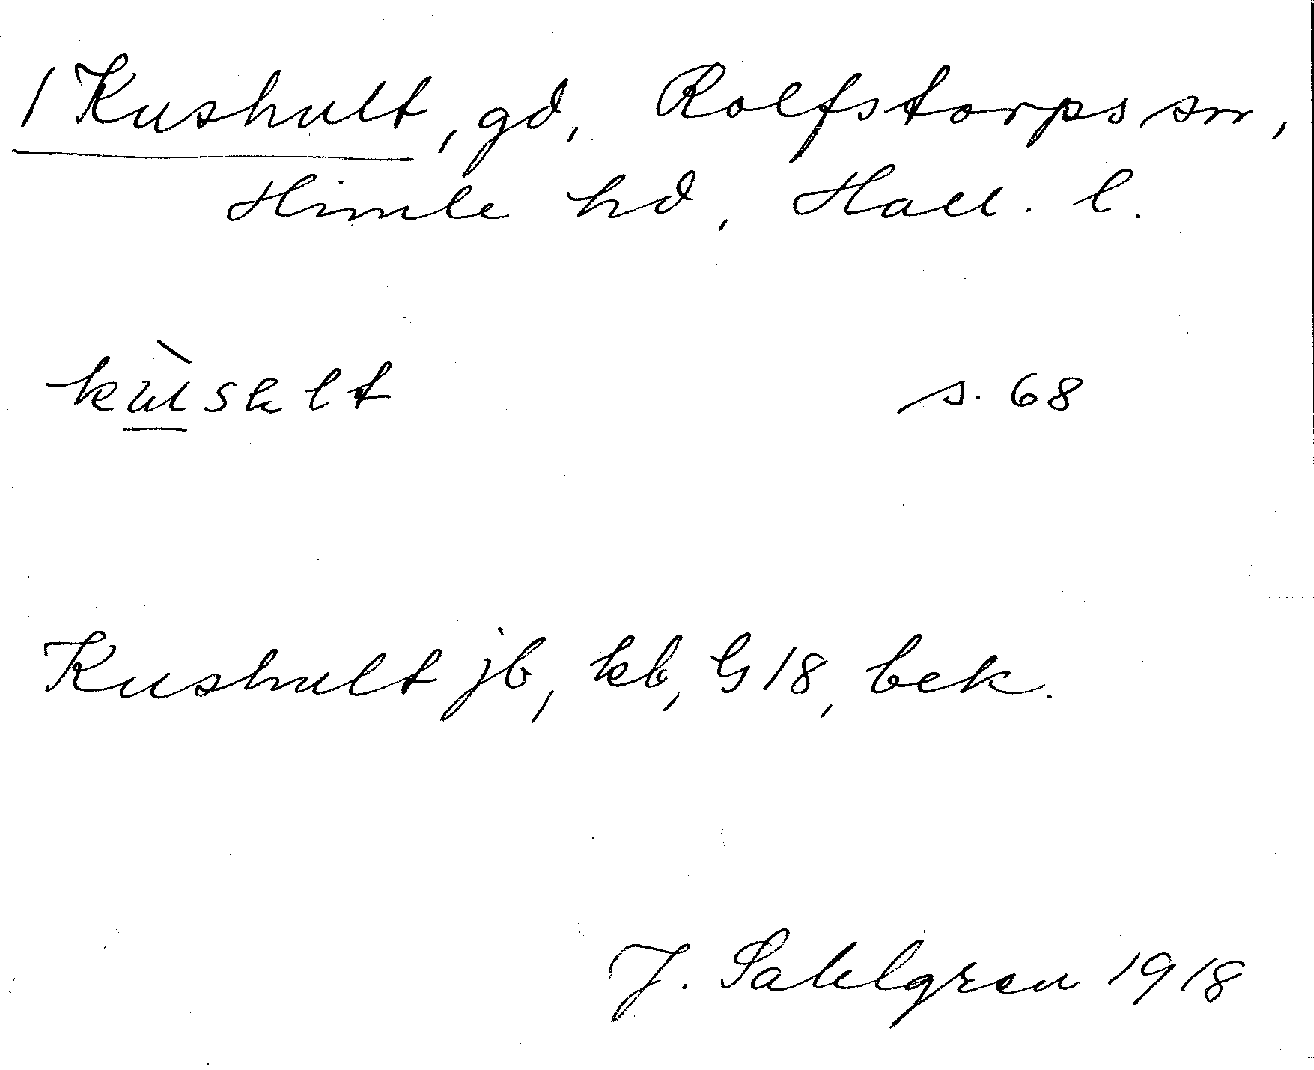 1 Kushult, gd, Rolfstorps sn,
Himle hd, Hall. l.
kùselt s. 68
Kushult jb, kb, G 18, bek.
J. Sahlgren 1918